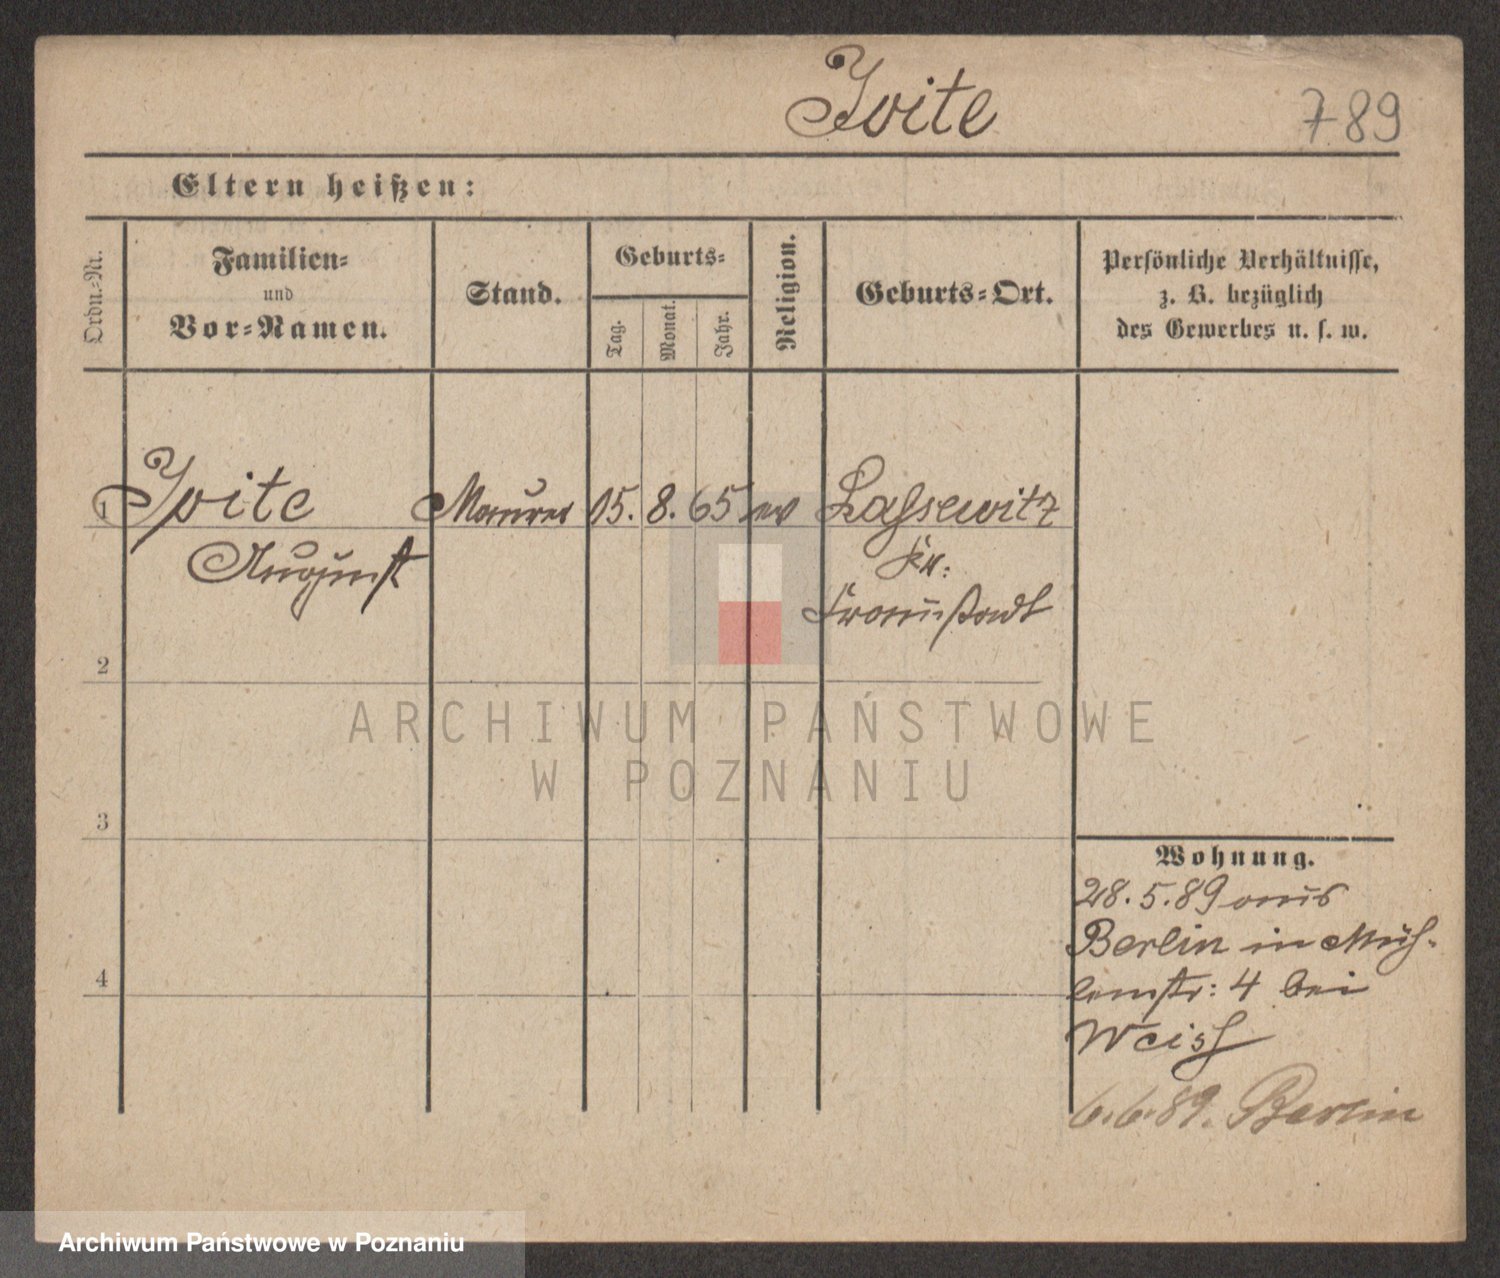 Ivite
789
Eltern heißen:
Ordn.-Nr.
Familien-
und
Vor-Namen.
Stand.
Geburts-
Tag.
Monat.
Jahr.
Religion.
Geburts-Ort.
Persönliche Verhältnisse,
z. B. bezüglich
des Gewerbes u. s. w.
1 Maurer 15. 8. 65 ev Lassewitz
August Kr:
Fraustadt
2
ARCHIWUM PAŃSTWOWE
W POZNANIU
3
Wohnung.
28. 5. 89 aus
Berlin in Müh-
lenstr: 4 bei
Weiss
4
6. 6. 89. Berlin
Archiwum Państwowe w Poznaniu